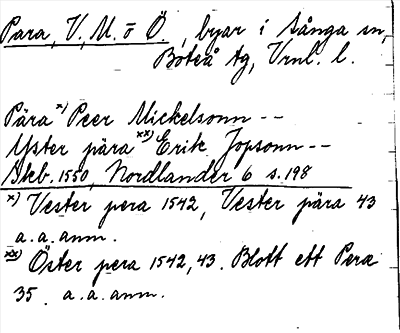 Para, V, M. o Ö. , byar i Sånga sn,
Boteå tg, Vrnl. l.
Pära x) Peer Mickelsonn --
Yster pära xx) Erik Jopsonn --
Skb. 1550, Nordlander 6 s. 198
x) Vester pera 1542, Vester pära 43
a. a. anm.
xx) Öster pera 1542, 43. Blott ett Pera
35. a. a. anm.